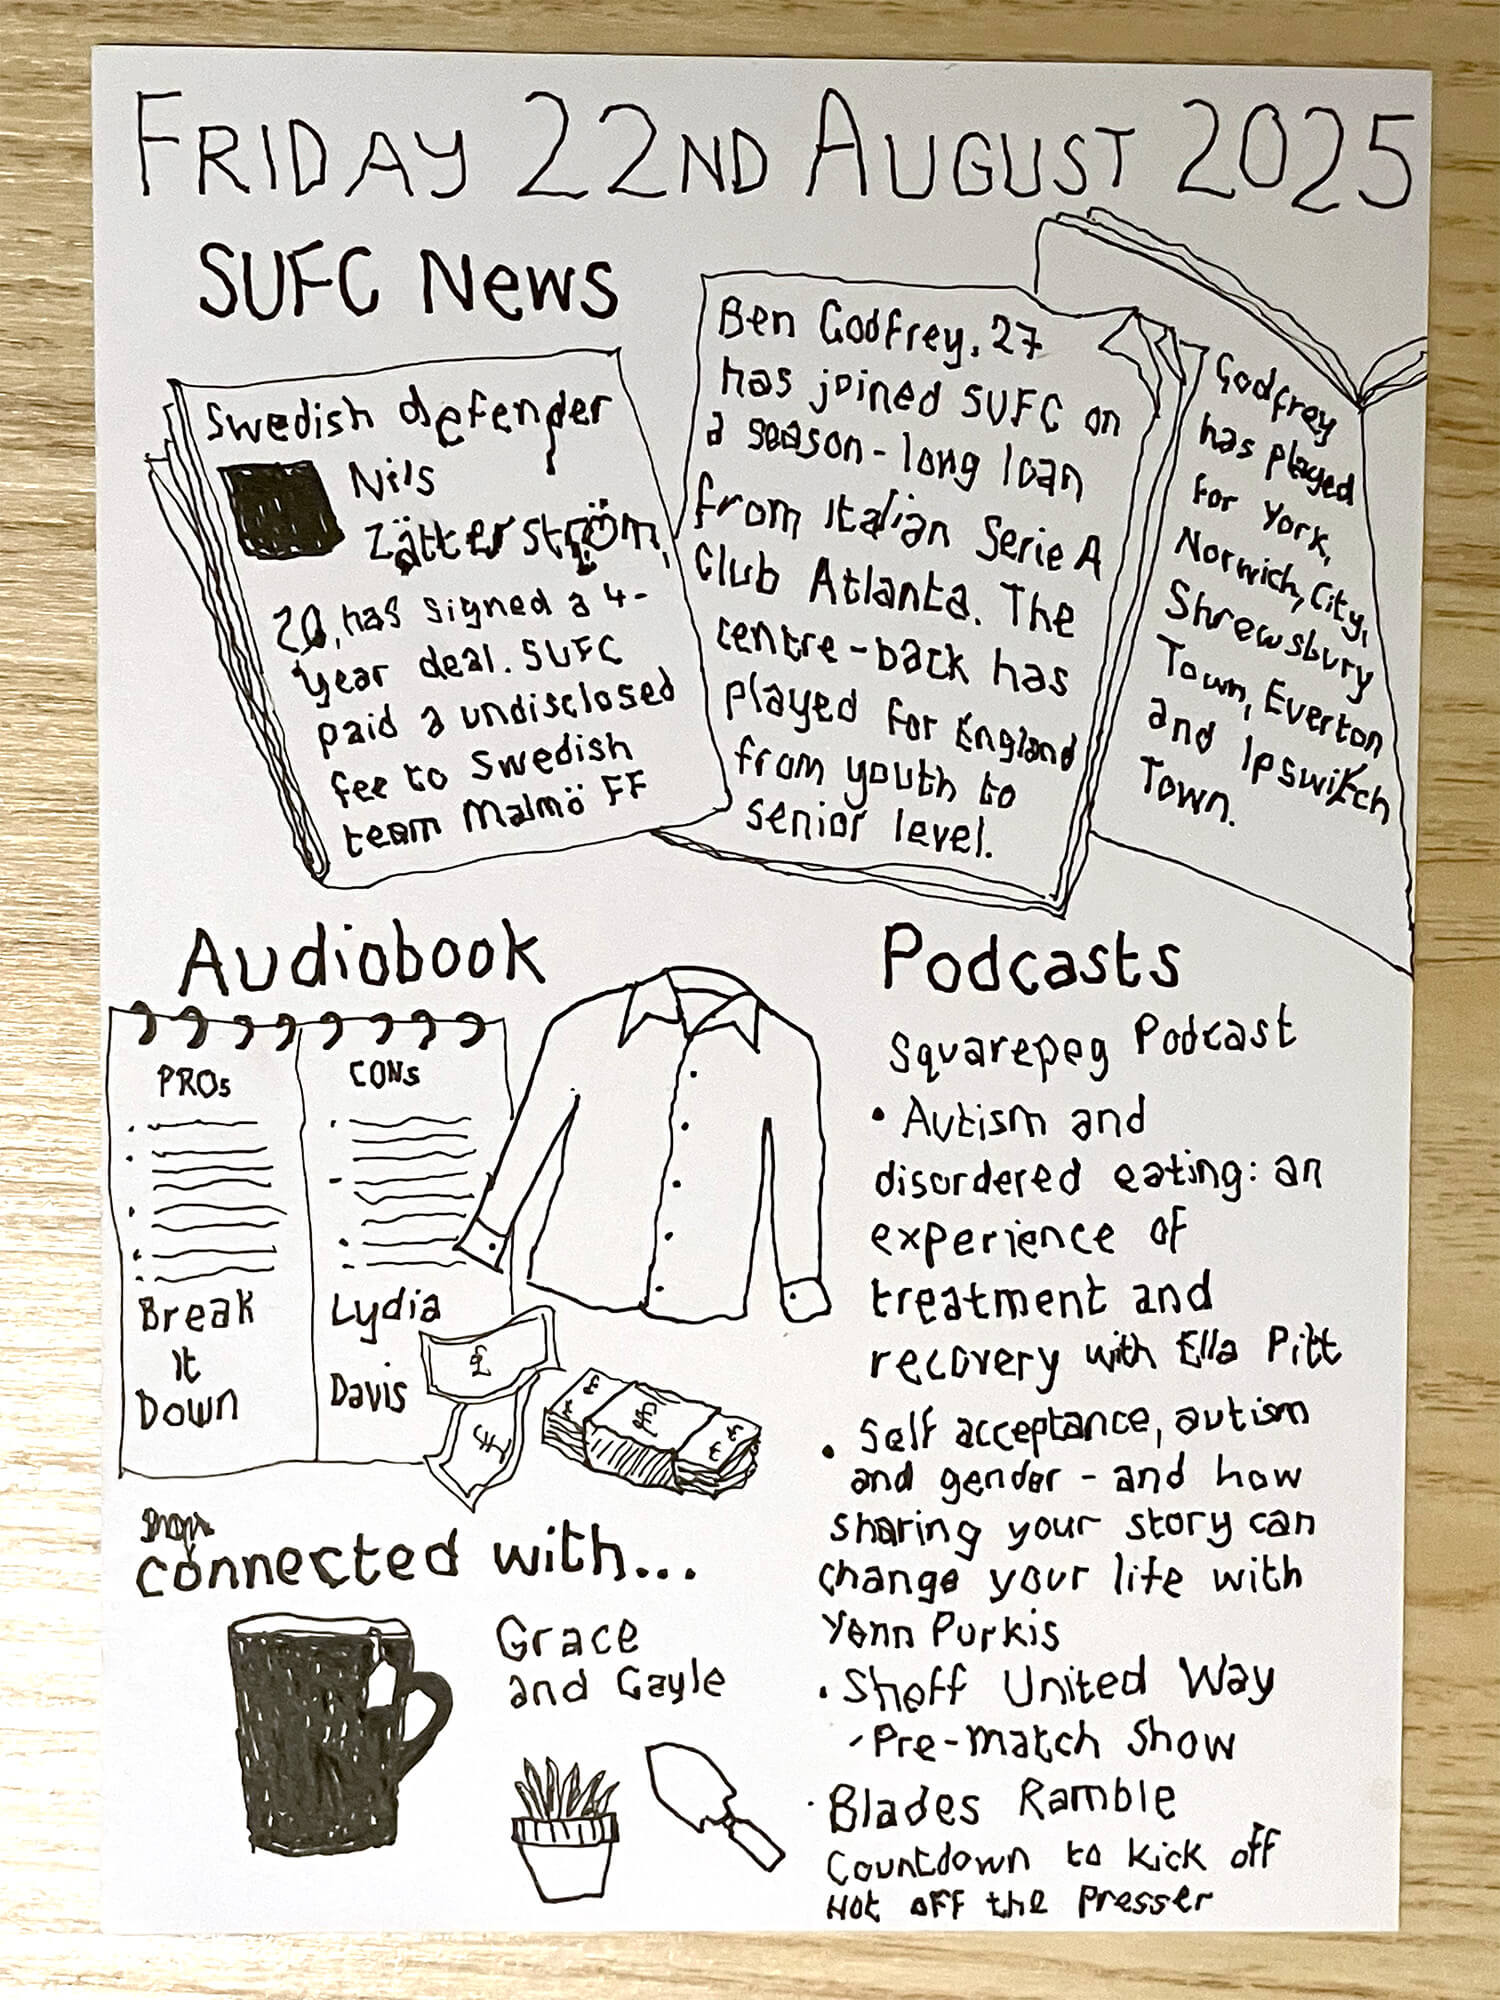 FRIDAY 22ND AUGUST 2025
SUFC News
Swedish defender
Nils
Zätterström,
20, has signed a 4-
year deal. SUFC
paid a undisclosed
fee to Swedish
team Malmö FF
Ben Godfrey, 27
has joined SUFC on
a season-long loan
from Italian Serie A
Club Atlanta. The
centre-back has
played for England
from youth to
senior level.
Godfrey
has played
for York,
Norwich, City,
Shrewsbury
Town, Everton
and Ipswitch
Town.
Audiobook
PROs
CONs
Break
It
Down
Lydia
Davis
£
£
£
£
£
£
Podcasts
Squarepeg Podcast
• Autism and
disordered eating: an
experience of
treatment and
recovery with Ella Pitt
• Self acceptance, autism
and gender - and how
sharing your story can
change your life with
Yenn Purkis
• Sheff United Way
- Pre-match show
· Blades Ramble
Countdown to kick off
Hot off the presser
connected with...
Grace
and Gayle